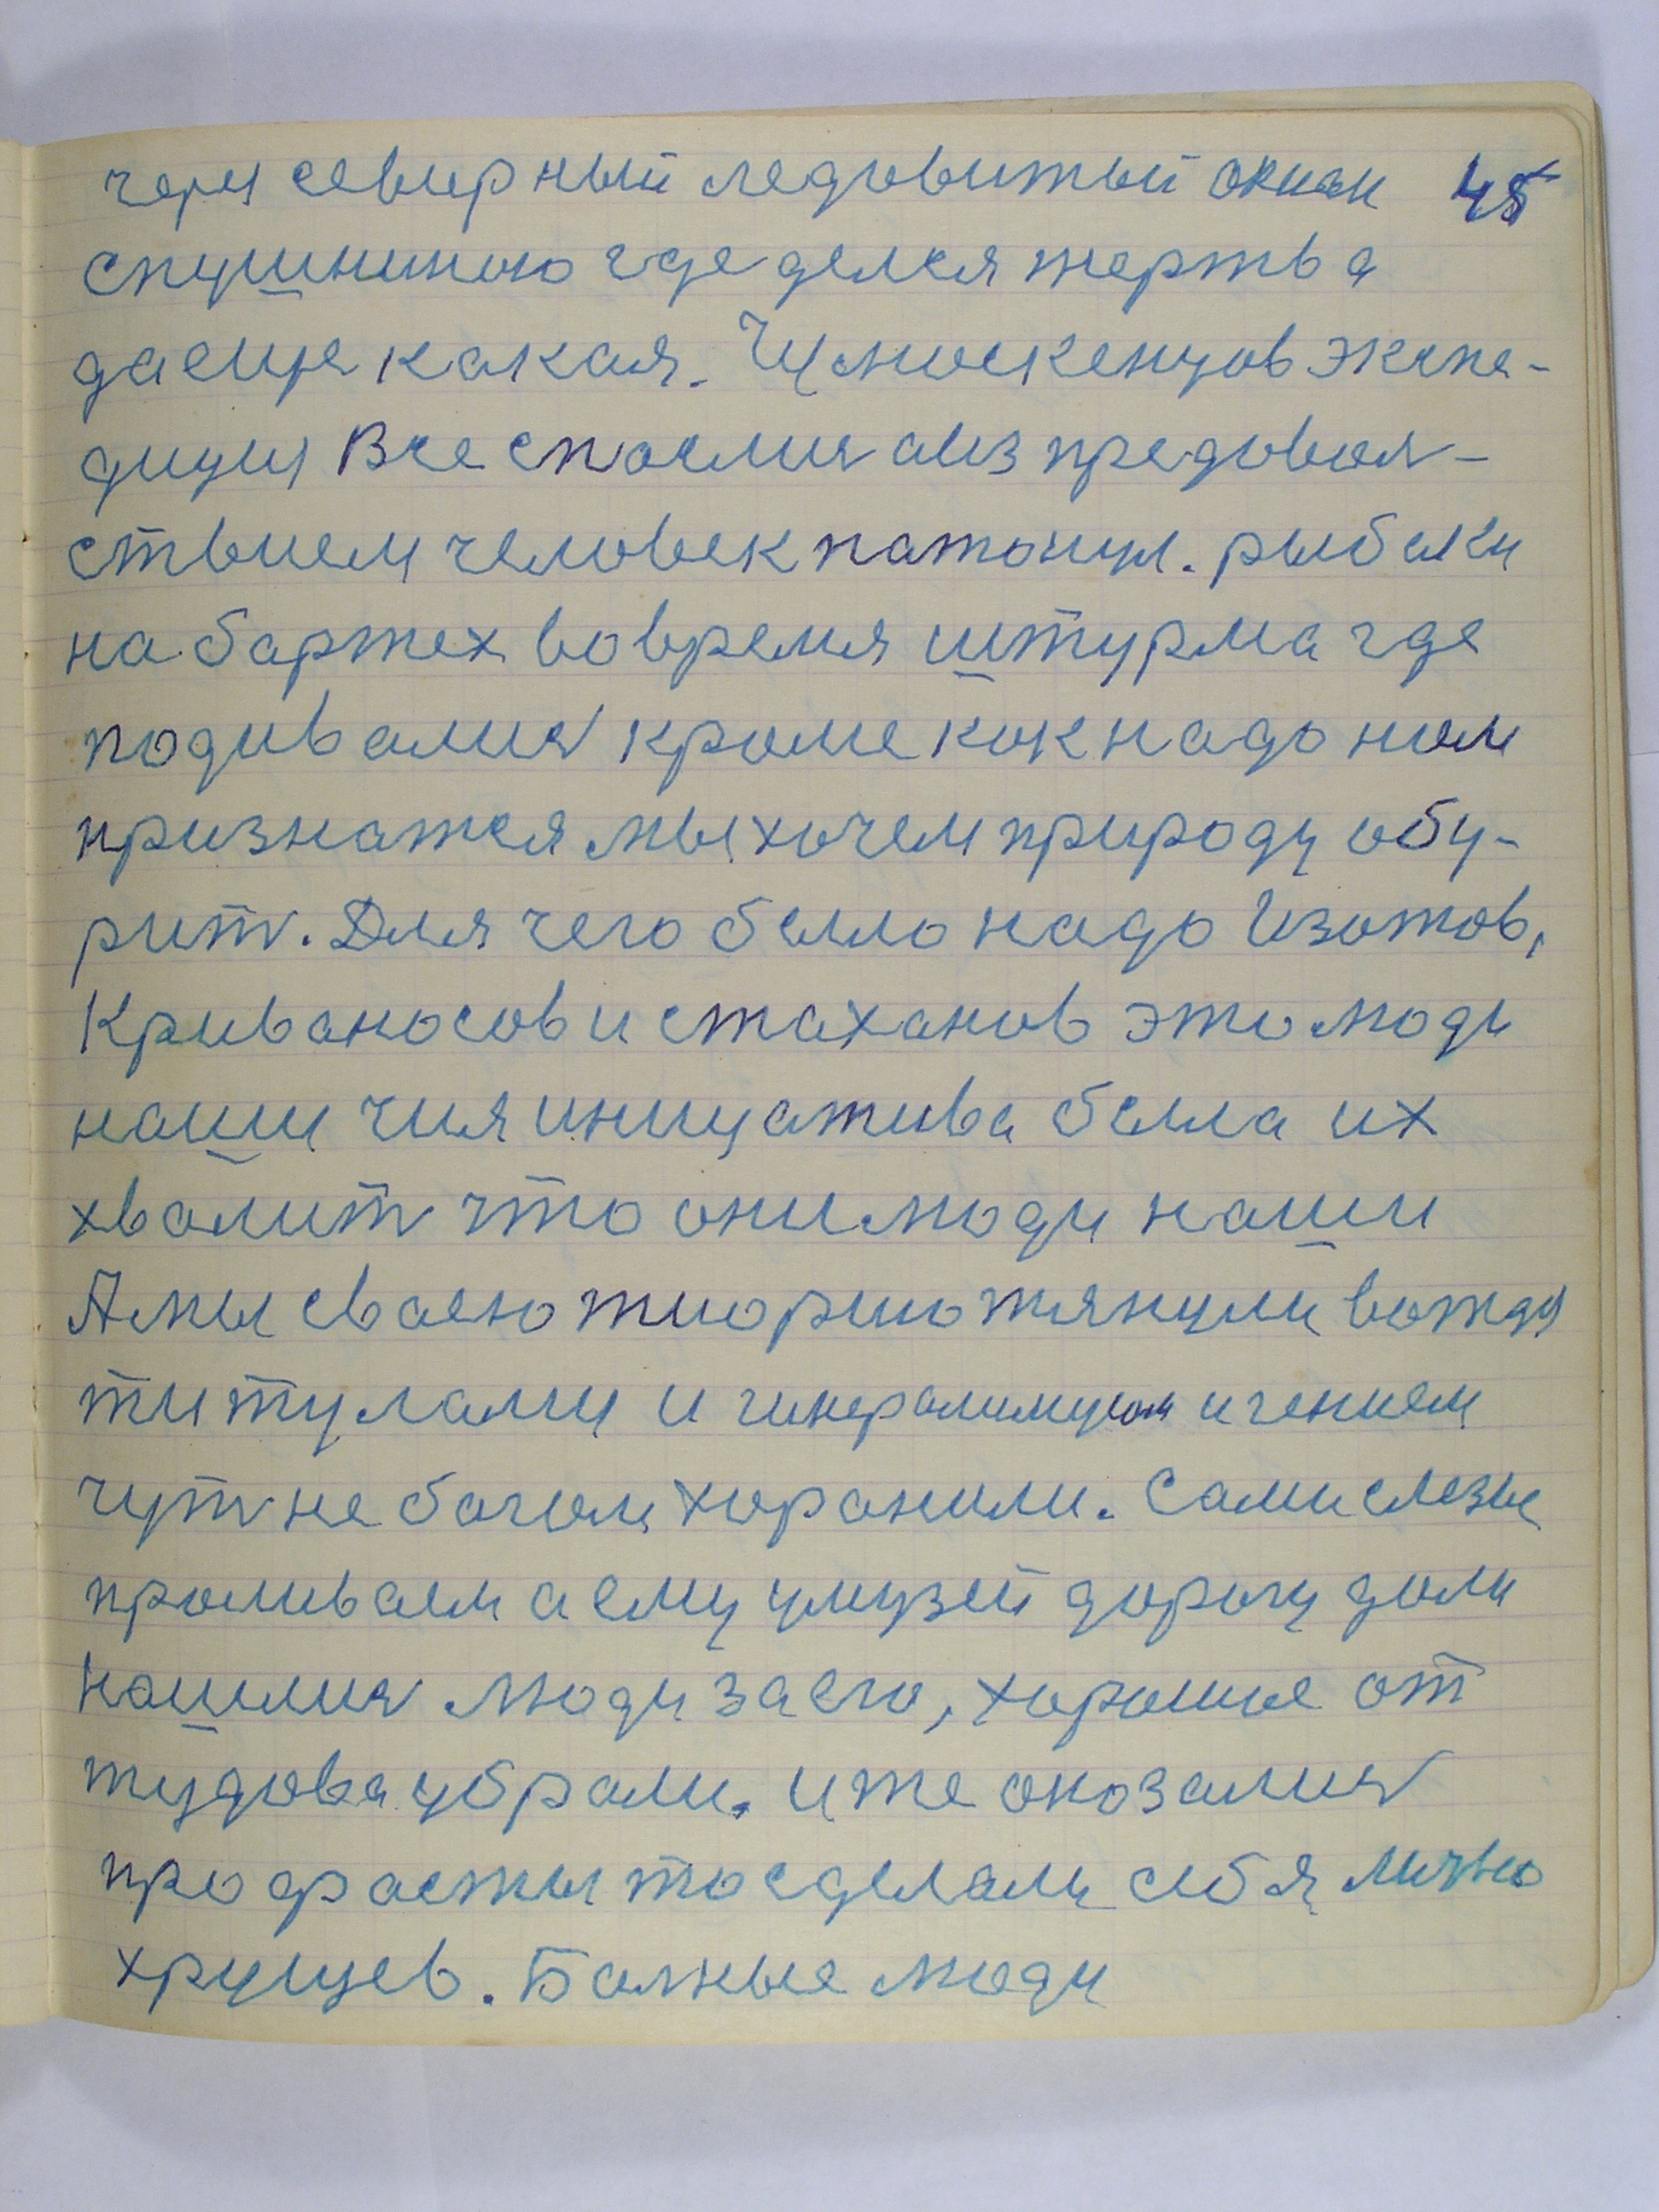 чери севирный ледовитый окиан 45
спушниною где делся жертва
да еще какая. Чумоскенцов экспе-
дицыя Все спослися аиз предовол-
ствием человек патонул. рыбаки
на баржех вовремя штурма где
подивалися кроме как надо нам
признатся мы хочем природу обу-
рит. Для чего было надо Изотов,
Криваносов и стаханов это люди
наши чия иницатива была их
хвалит что они люди наши
А мы сваею тиорию тянули вождя
титулами и гинералимусом и гением
чут не богом хоранили. Сами слезы
проливаем а ему умузей дорогу дали
нашлися люди за его, хорошие от
тудова убрали. и те оказалися
про фасты то сделали себя лично
хрущев. Балные люди